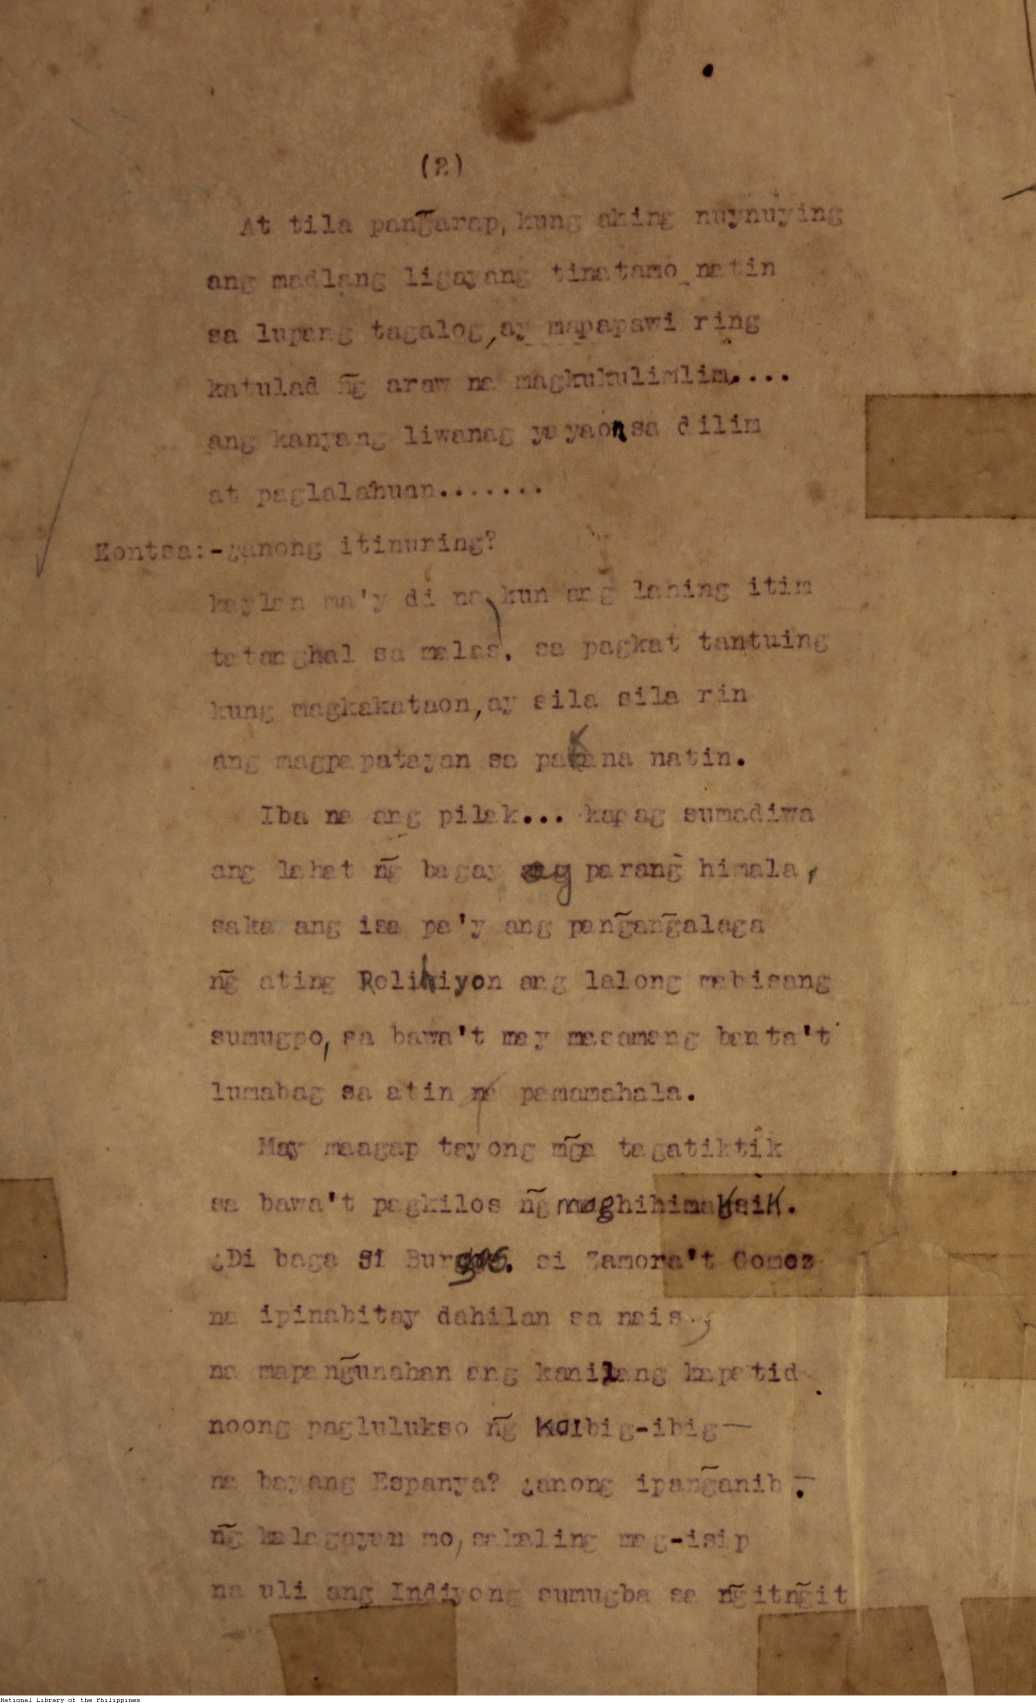 (2)
At tila pang̃arap, kung aking nuynuying
ang madlang ligayang tinatamo natin
sa lupang tagalog, ay mapapawi ring
katulad ng̃ araw na magkukulimlim....
ang kanyang liwanag yayaon sa dilim
at paglalahuan.......
Kontsa:-¿anong itinuring?
kaylan ma'y di na, kun ang lahing itim
tatanghal sa malas, sa pagkat tantuing
kung magkakataon, ay sila sila rin
ang magpapatayan sa pakana natin.
Iba na ang pilak... kapag sumadiwa
ang lahat ng̃ bagay ay parang himala,
saka ang isa pa'y ang pang̃ang̃alaga
ng̃ ating Relihiyon ang lalong mabisang
sumugpo, sa bawa't may masamang banta't
lumabag sa atin pamamahala.
May maagap tayong mg̃a tagatiktik
sa bawa't pagkilos ng̃ maghihimaksik.
¿Di baga si Burgos. si Zamora't Gomez
na ipinabitay dahilan sa nais
na mapang̃unahan ang kanilang kapatid
noong paglulukso ng̃ kaibig-ibig—
na bayang Espanya? ¿anong ipang̃anib
ng̃ kalagayan mo, sakaling mag-isip
na uli ang Indiyong sumugba sa ng̃itng̃it
National Library of the Philippines